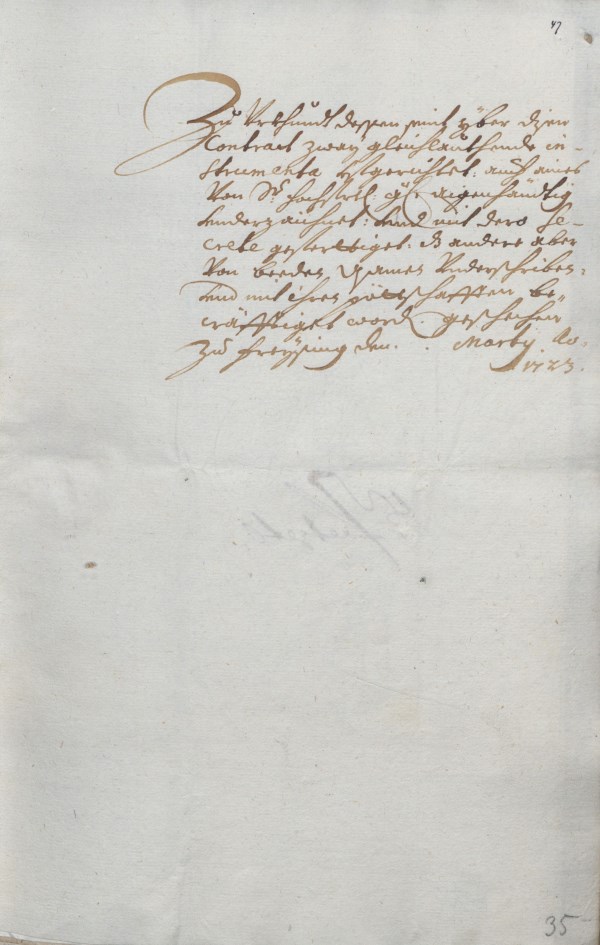 47
Zu Urkhundt dessen seint yber disen
Contract zway gleichlauthende in-
strumenta ufgerichtet: auch aines
von Sr: hochfrtl: gd: aigenhändtig
underzaichnet: und mit dero Se-
crete gefertiget: dz andere aber
von beeden underschriben,
und mit ihren pöttschafften be-
cräfftiget word. geschechen
zu Freysing den. Marty Ao.
1723.
35